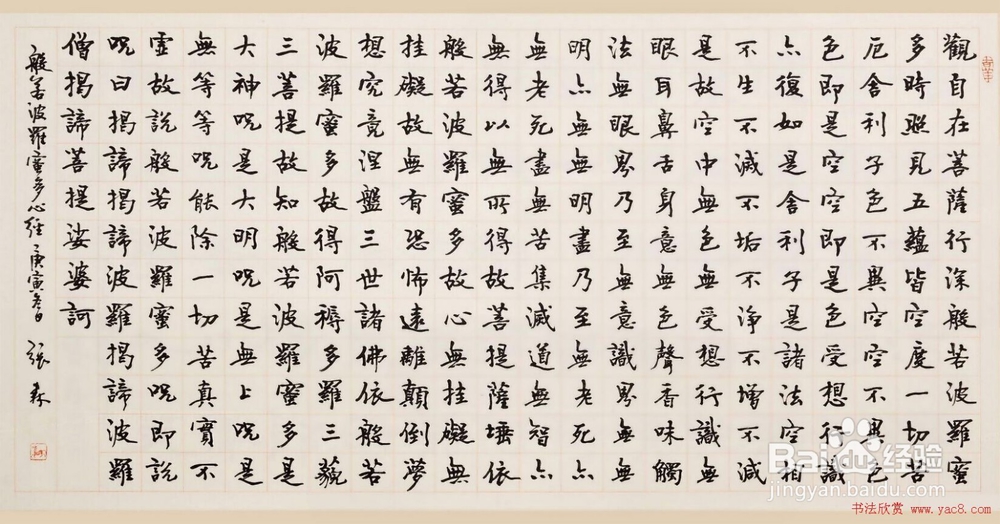 觀自在菩薩行深般若波羅蜜
多時照見五蘊皆空度一切苦
厄舍利子色不異空空不異色
色即是空空即是色受想行識
亦復如是舍利子是諸法空相
不生不滅不垢不淨不增不減
是故空中無色無受想行識無
眼耳鼻舌身意無色聲香味觸
法無眼界乃至無意識界無無
明亦無無明盡乃至無老死亦
無老死盡無苦集滅道無智亦
無得以無所得故菩提薩埵依
般若波羅蜜多故心無挂礙無
挂礙故無有恐怖遠離顛倒夢
想究竟涅盤三世諸佛依般若
波羅蜜多故得阿耨多羅三藐
三菩提故知般若波羅蜜多是
大神呪是大明呪是無上呪是
無等等呪能除一切苦真實不
虛故說般若波羅蜜多呪即說
呪曰揭諦揭諦波羅揭諦波羅
僧揭諦菩提娑婆訶
般若波羅蜜多心經 庚寅冬日 張森
Bai度经验
jingyan.baidu.com
书法欣赏 www.yac8.com